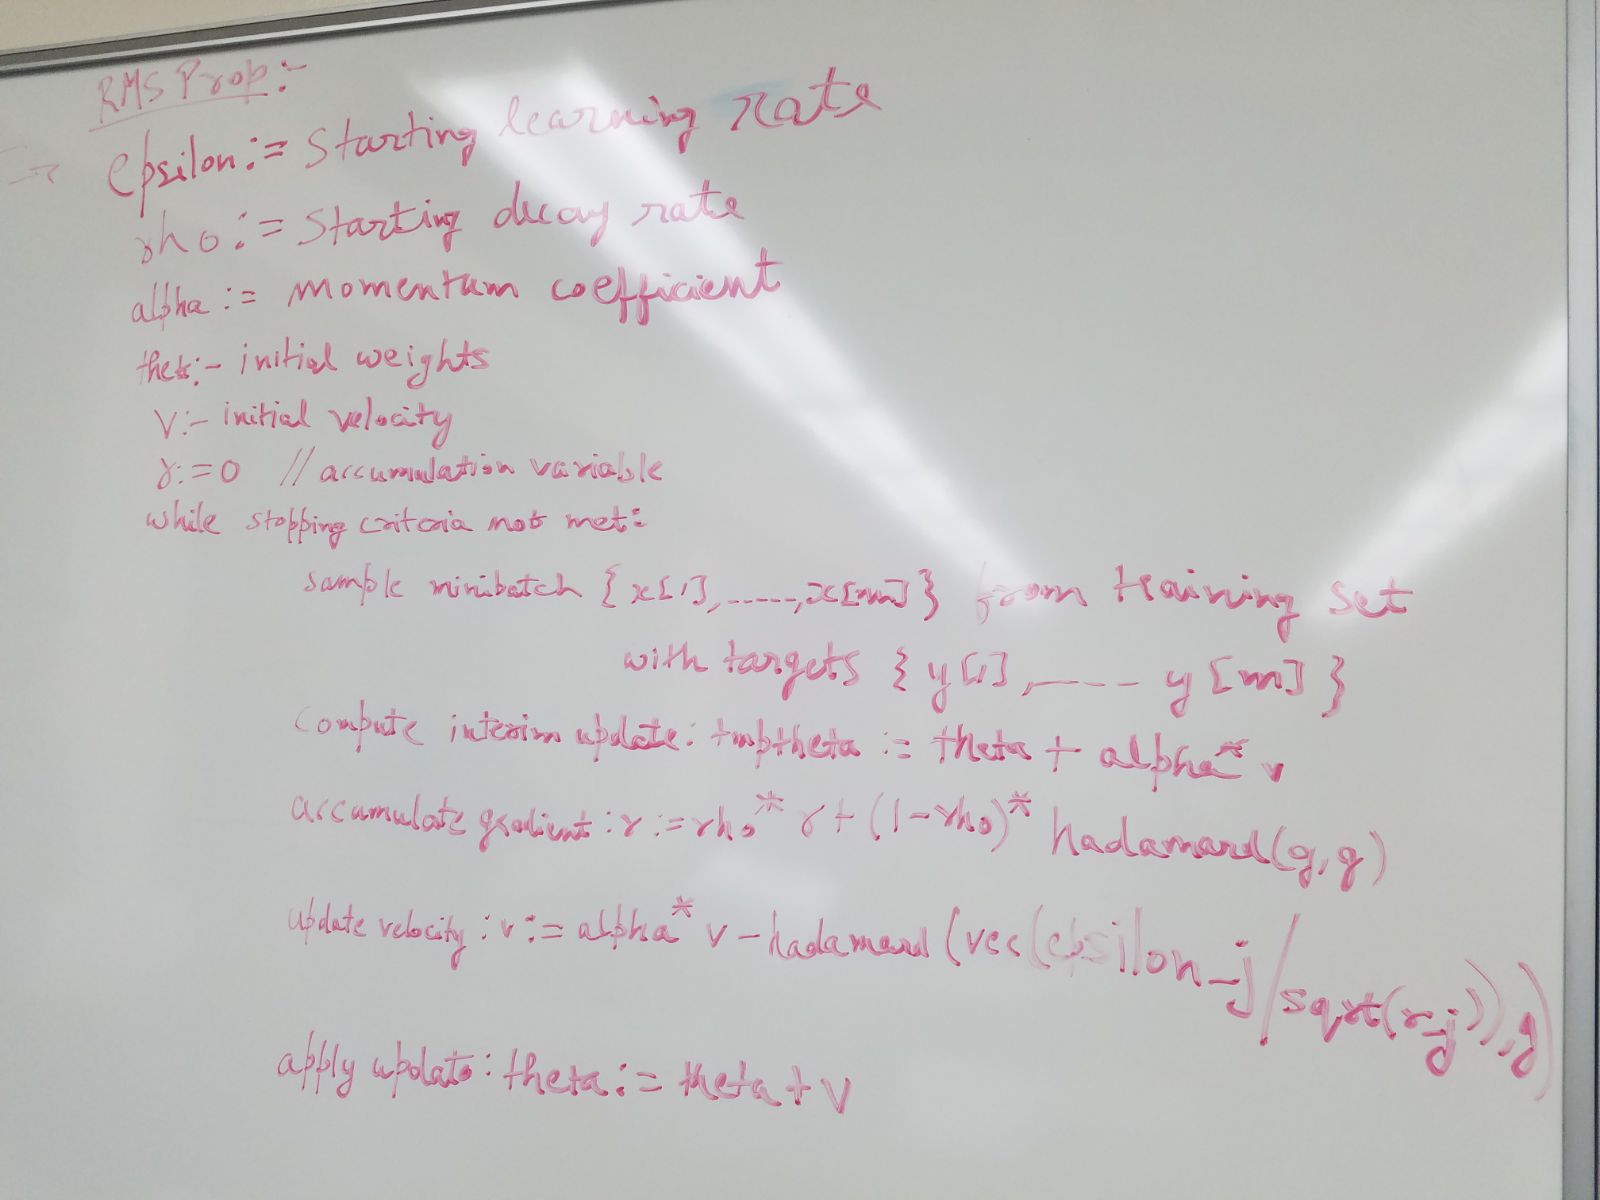 RMS Prop:-
epsilon := Starting learning rate
rho := Starting decay rate
alpha := momentum coefficient
theta:- initial weights
V:- initial velocity
r:=0 // accumulation variable
while stopping criteria not met:
sample minibatch {x[1],.....,x[m]} from training set
with targets {y[1],.---- y[m]}
compute interim update: tmptheta := theta + alpha* v
accumulate gradient: r := rho* r + (1-rho)* hadamard(g,g)
update velocity: v := alpha* v - hadamard (vec(epsilon_j/sqrt(r_j)),g)
apply update: theta := theta + v